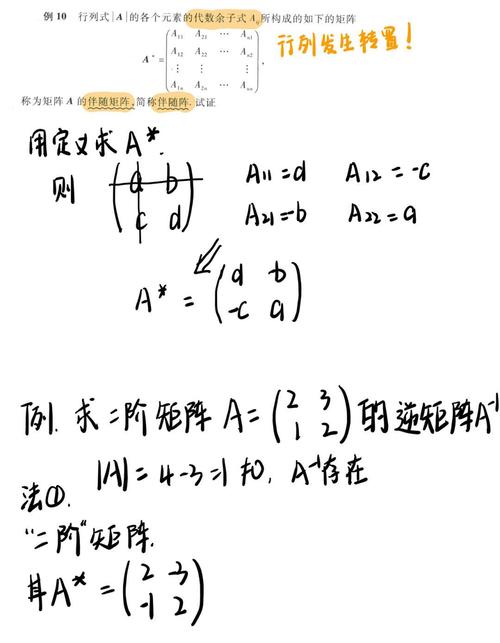 例 10 行列式|A|的各个元素的代数余子式 Aij所构成的如下的矩阵
A* = ( A11 A21 ⋯ An1
A12 A22 ⋯ An2
⋮ ⋮ ⋮
A1n A2n ⋯ Ann ),
行列发生转置!
称为矩阵 A 的伴随矩阵,简称伴随阵. 试证
用定义求A*.
则 ( a b
c d )
A11=d A12=-c
A21=-b A22=a
A* = ( d -b
-c a )
例. 求二阶矩阵 A= ( 2 3
1 2 ) 的逆矩阵A⁻¹
|A|=4-3=1≠0, A⁻¹存在
法①.
"二阶"矩阵.
其A* = ( 2 -3
-1 2 )